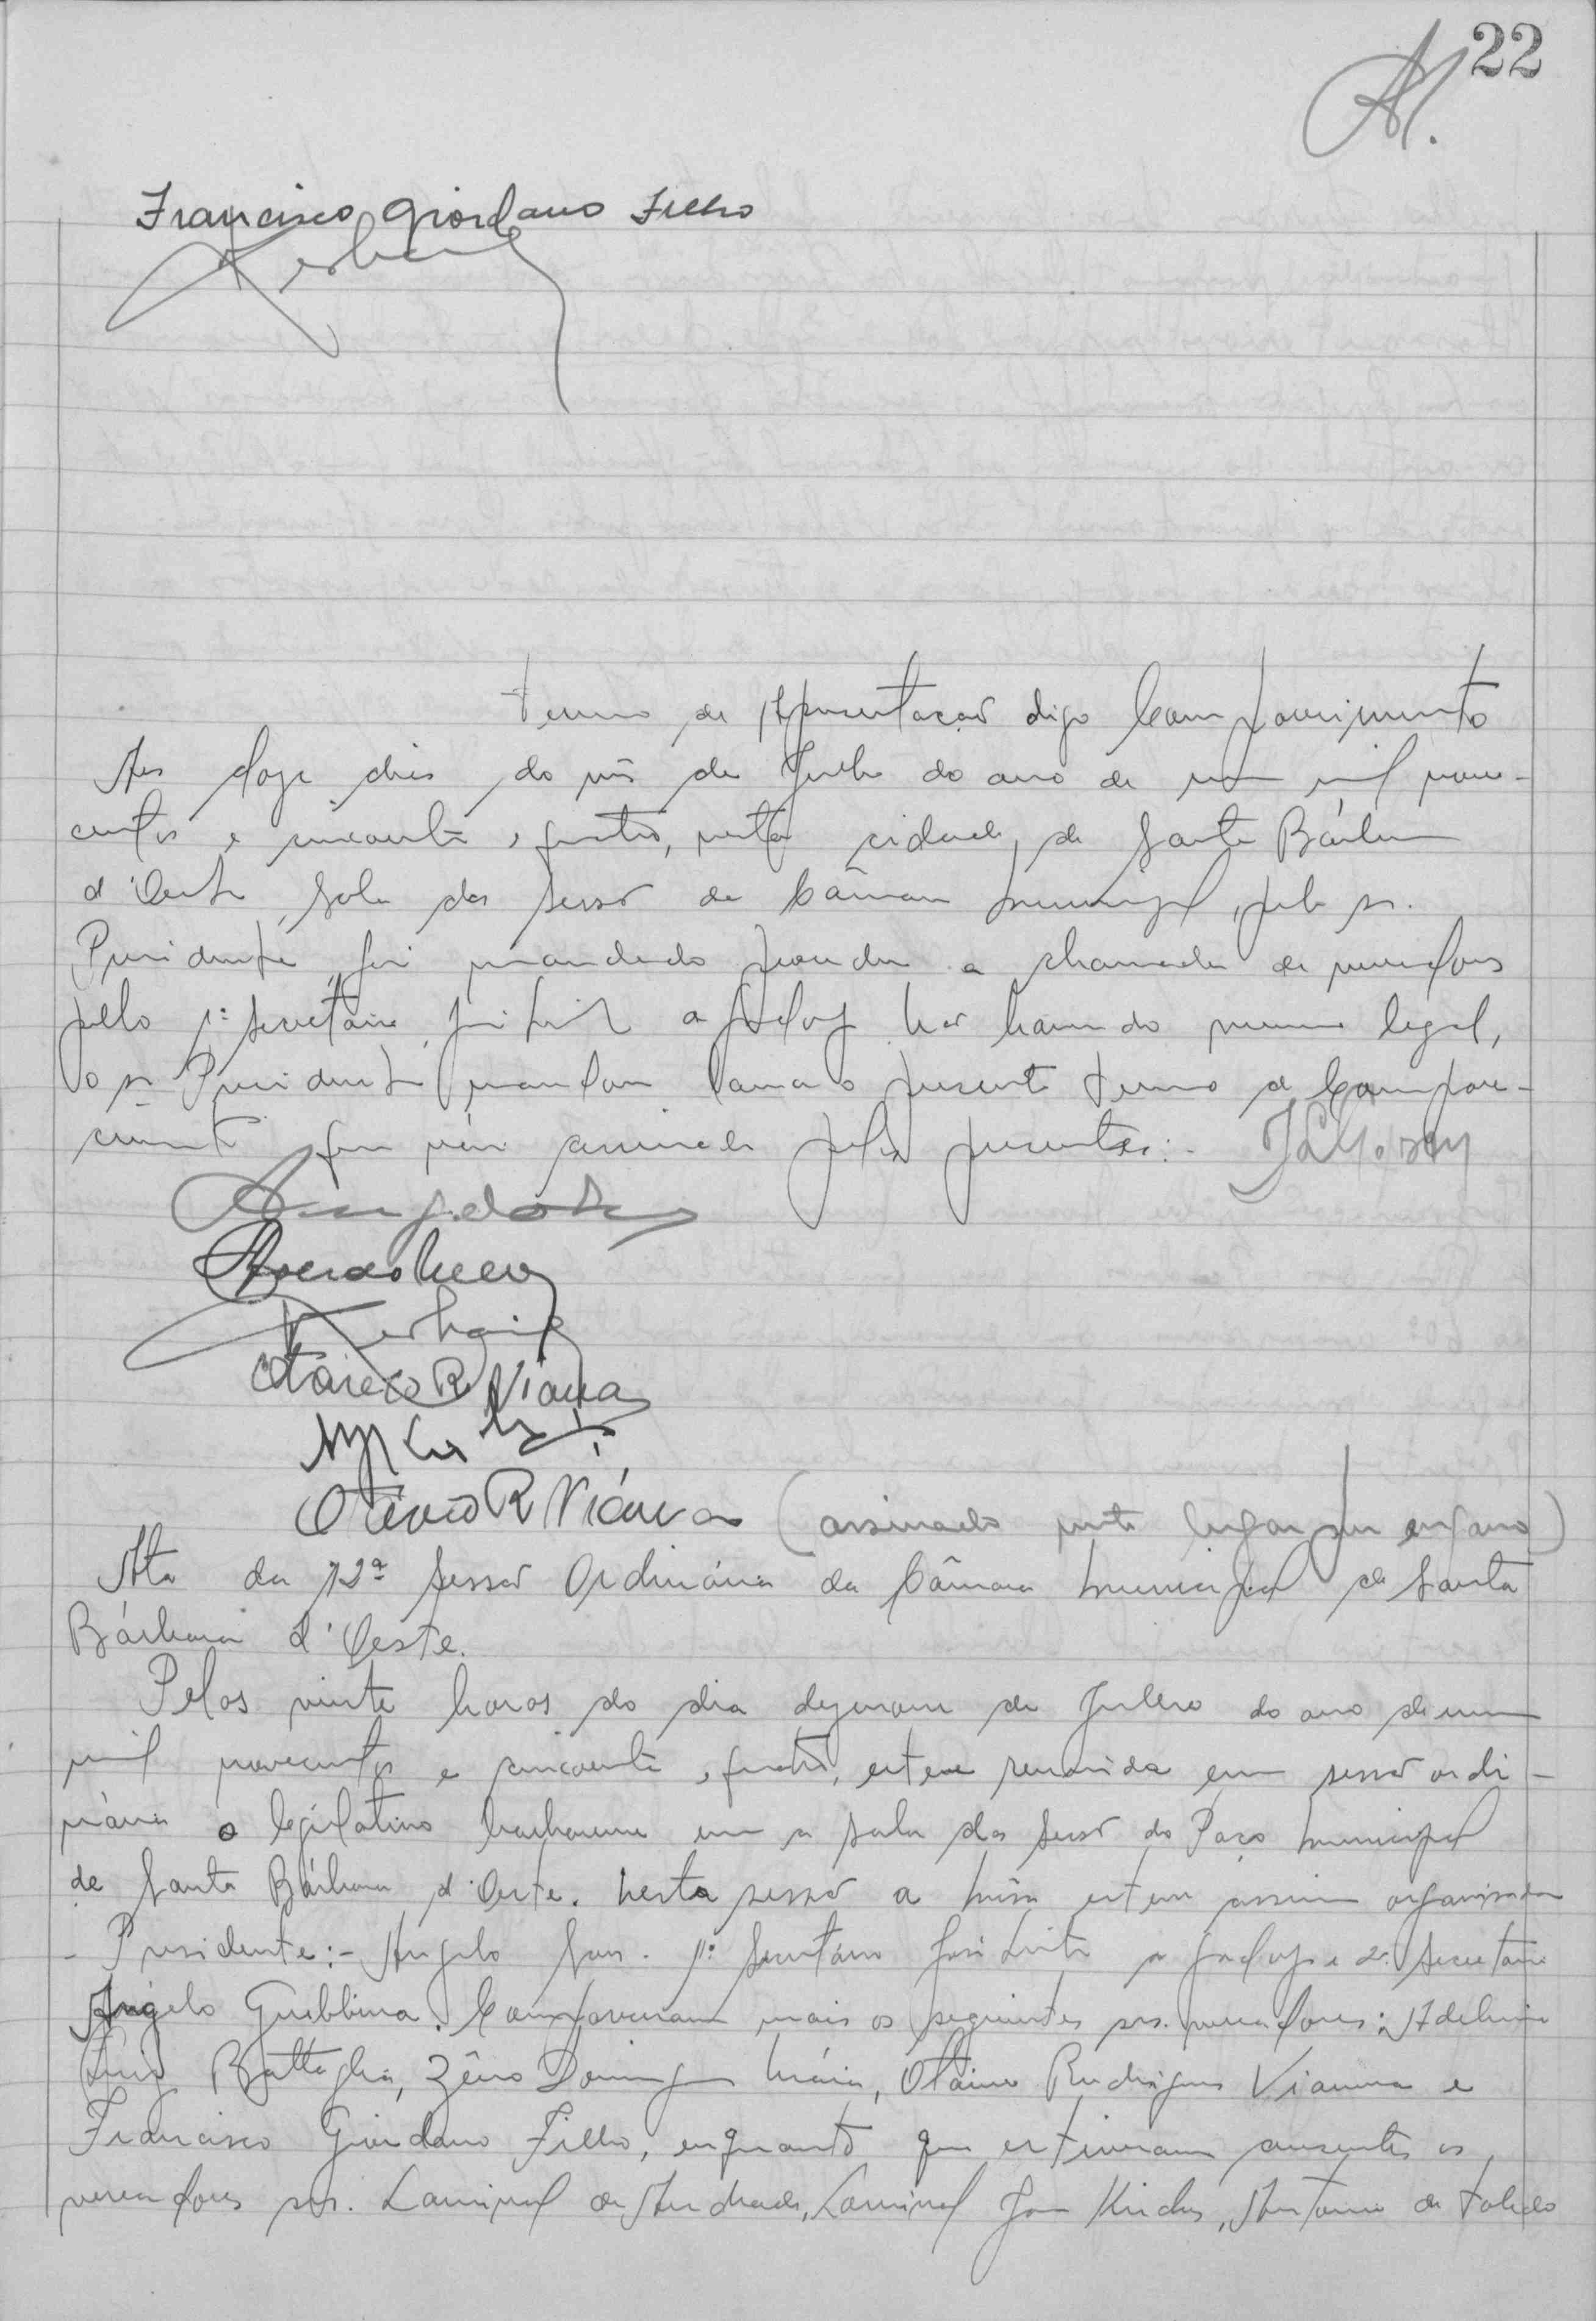 22
Francisco Giordano Filho
Termo de Apresentação digo Comparecimento
Aos doze dias do mês de Julho do ano de um mil nove-
centos e cincoenta e quatro, nesta cidade de Santa Bárbara
d'Oeste, sala das sessões da Câmara Municipal, pelo sr.
Presidente, foi mandado proceder a chamada de vereadores
pelo 1º secretário, José Leite de Godoy. Não havendo numero legal,
o sr. Presidente mandou lavrar o presente termo de Compare-
cimento que vai assinado pelos presentes:-
Otávio R Viana
Otávio R Viana (assinado neste lugar por engano)
Ata da 12ª Sessão Ordinária da Câmara Municipal de Santa
Bárbara d'Oeste.
Pelas vinte horas do dia dezenove de Julho do ano de um
mil novecentos e cincoenta e quatro, esteve reunida em sessão ordi-
nária o legislativo barbarense em a sala das sessões do Paço Municipal
de Santa Bárbara d'Oeste. Nesta sessão a mêsa esteve assim organisada
- Presidente:- Angelo Sans. 1º Secretário José Leite de Godoy e 2º Secretário
Angelo Giubbina. Compareceram mais os seguintes srs. vereadores: Adelino
Luiz Battaglia, Zêno Domingos Máia, Otávio Rodrigues Vianna e
Francisco Giordano Filho, enquanto que estiveram ausentes os
vereadores srs. Laurival de Andrade, Laurival José Antonio de Toledo